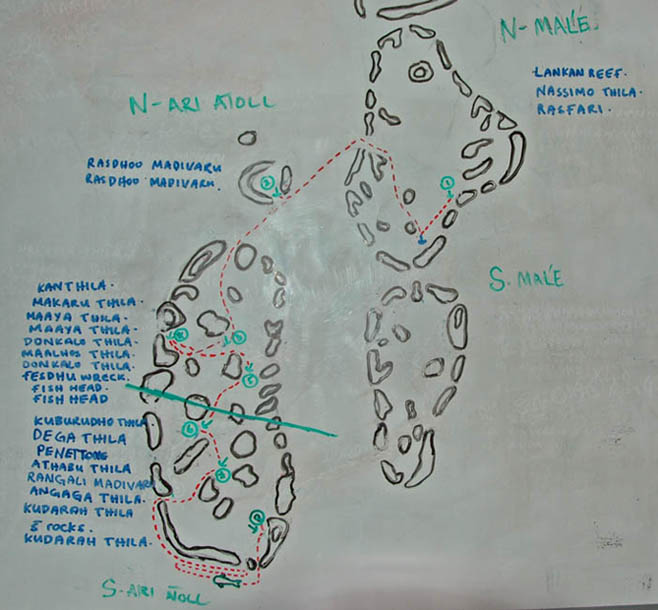 N-MALÉ
LANKAN REEF.
NASSIMO THILA.
RASFARI.
N-ARI ATOLL
RASDHOO MADIVARU
RASDHOO MADIVARU.
1
2
S. MALÉ
KANTHILA.
MAKARU THILA.
MAAYA THILA.
MAAYA THILA.
DONKALO THILA.
MAALHOS THILA.
DONKALO THILA.
FESDHU WRECK.
FISH HEAD.
FISH HEAD
3
4
5
KUBURUDHO THILA.
DEGA THILA
PENETTONG
ATHABU THILA
RANGALI MADIVARU
ANGAGA THILA.
KUDARAH THILA
5 ROCKS.
KUDARAH THILA.
6
7
8
S-ARI ATOLL